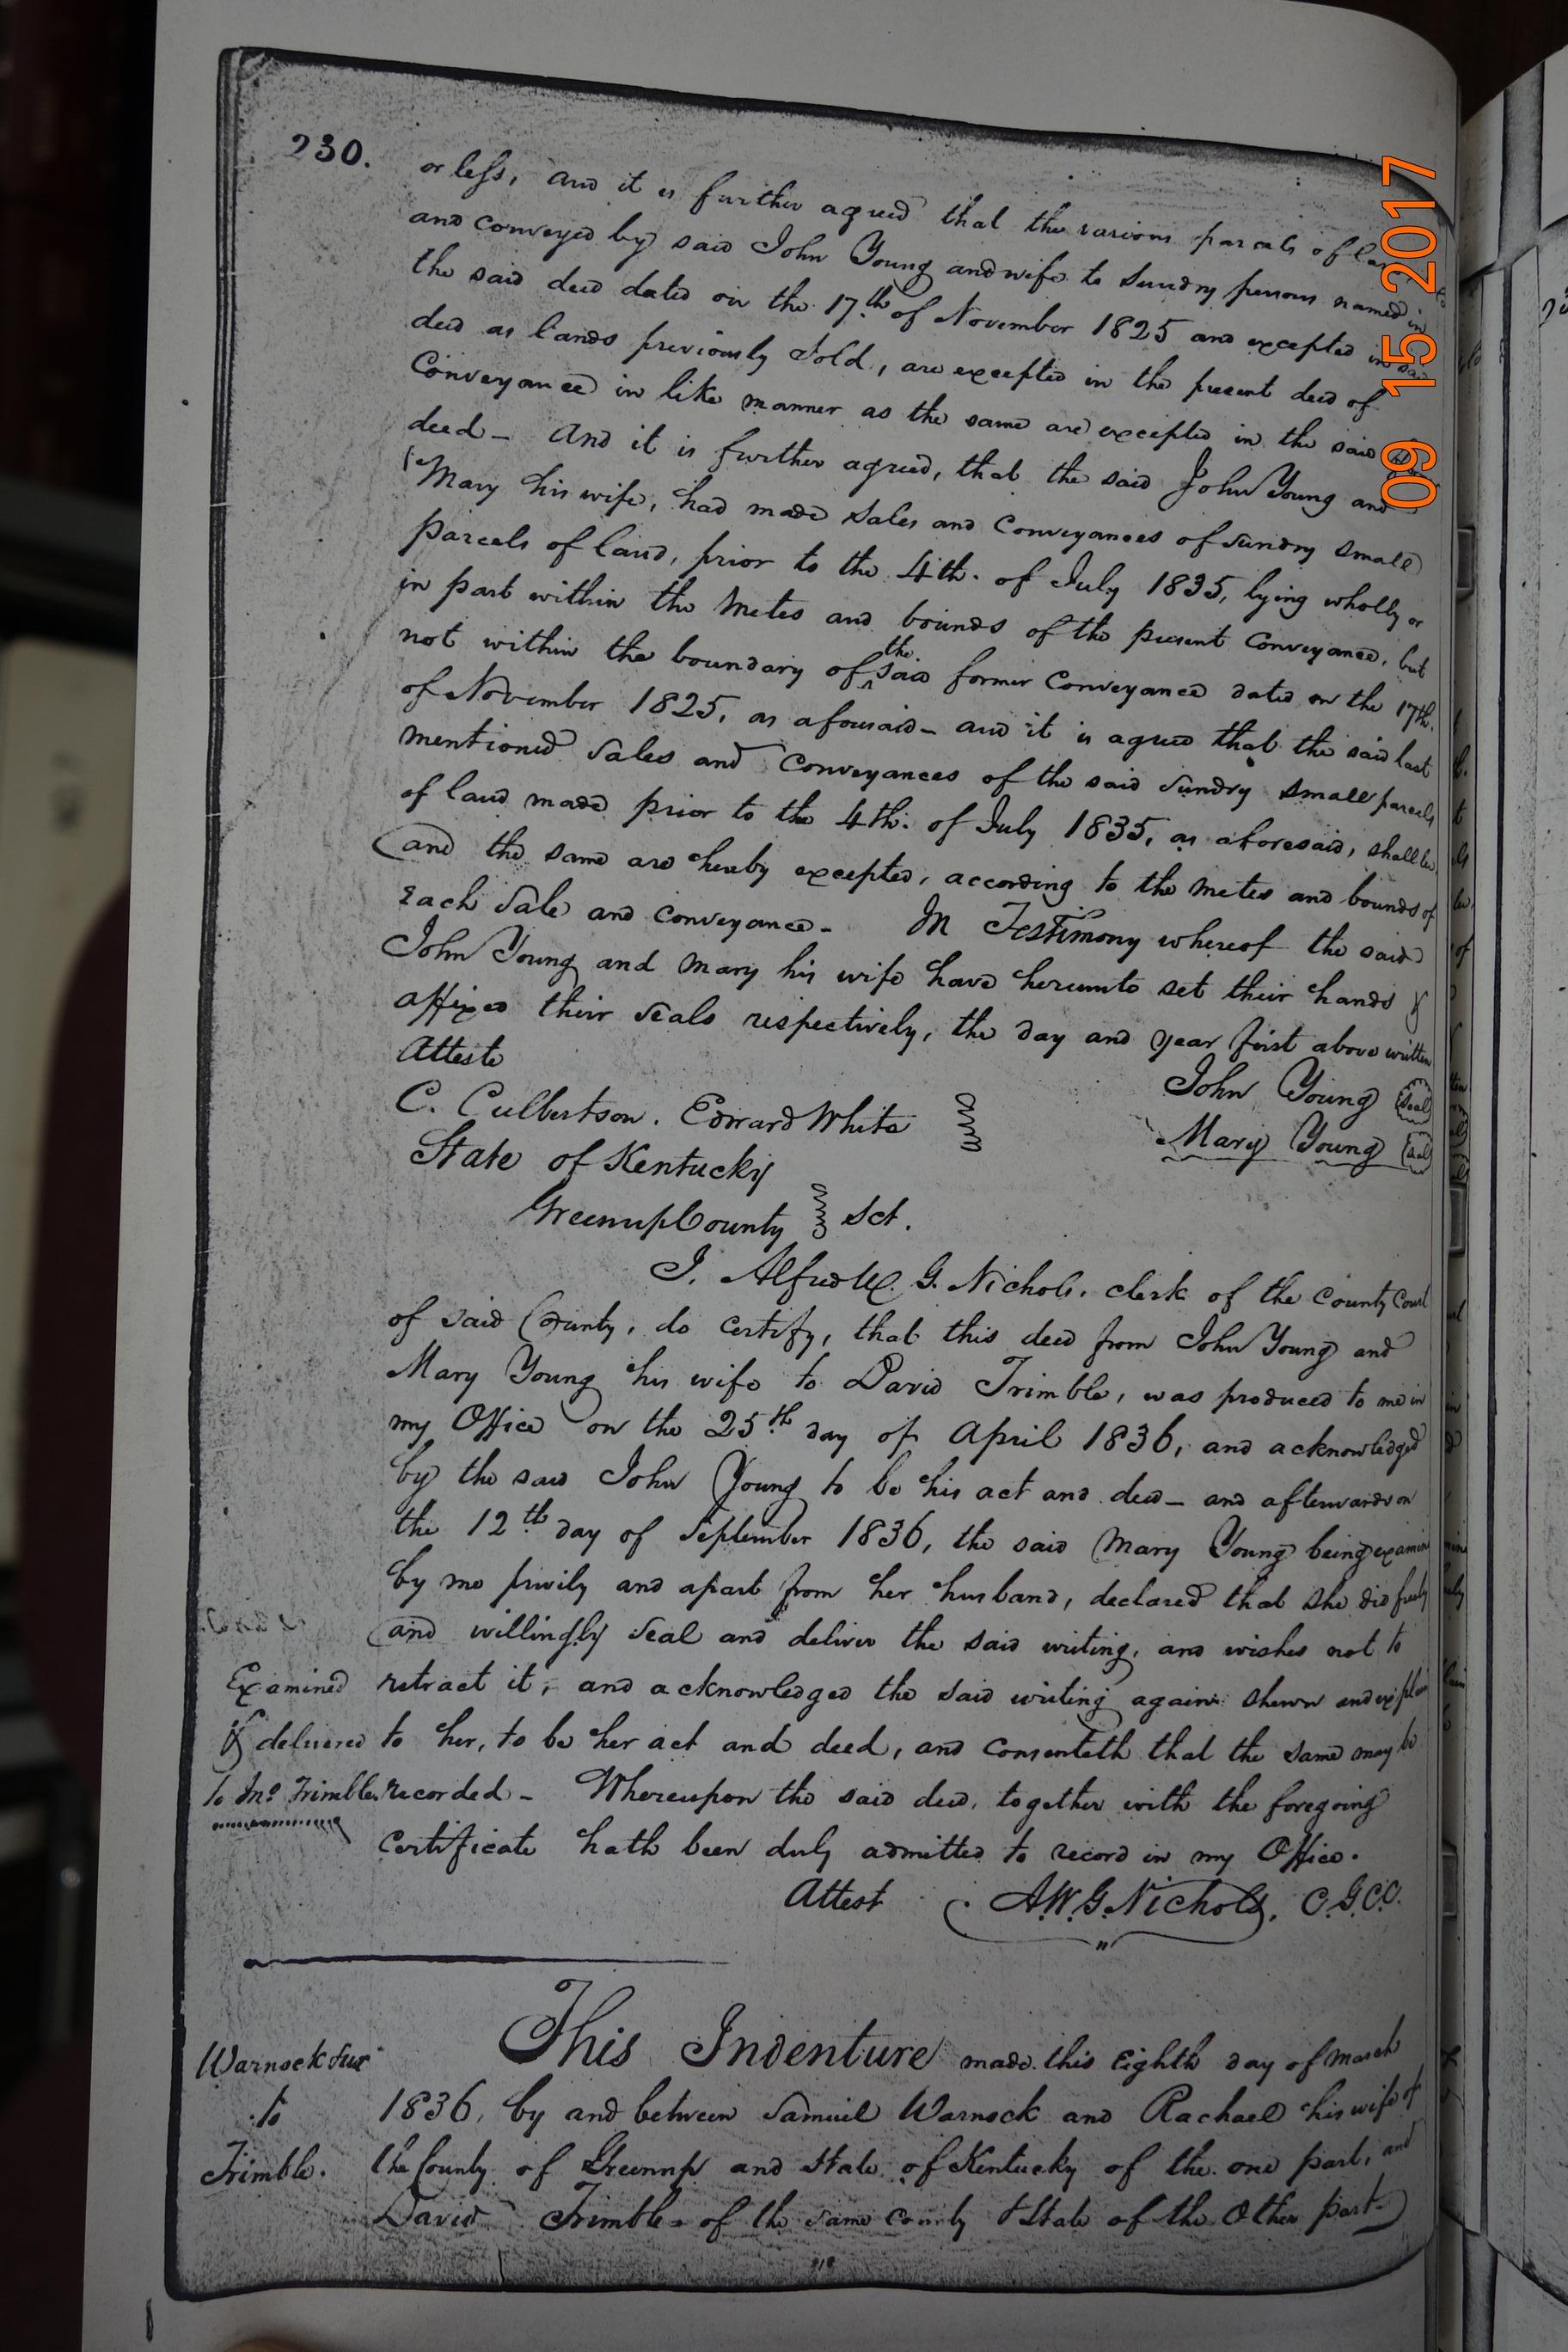 230.
or less, and it is further agreed that the various parcels of
and conveyed by said John Young and wife to Sundry persons named in
the said deed dated on the 17th of November 1825 and excepted in said
deed as lands previously Sold, are excepted in the present deed of
Conveyance in like manner as the same are excepted in the said
deed - And it is further agreed, that the said John Young and
Mary his wife, had made Sales and Conveyances of Sundry small
parcels of land, prior to the 4th. of July 1835, lying wholly or
in part within the Metes and bounds of the present Conveyance, but
not within the boundary of the said former Conveyance dated on the 17th.
of November 1825, as aforesaid - and it is agreed that the said last
mentioned Sales and Conveyances of the said Sundry small parcels
of land made prior to the 4th. of July 1835, as aforesaid, shall be
and the same are hereby excepted, according to the metes and bounds of
Each Sale and conveyance - In Testimony whereof the said
John Young and Mary his wife have hereunto set their hands &
affixed their Seals respectively, the day and year first above written
Atteste
John Young Seal
C. Culbertson. Edward White
Mary Young Seal
State of Kentucky
Greenup County Sct.
I. Alfred W. G. Nichols. clerk of the County Court
of said County, do certify, that this deed from John Young and
Mary Young his wife to David Trimble, was produced to me in
my Office on the 25th day of April 1836, and acknowledged
by the said John Young to be his act and deed - and afterwards on
the 12th day of September 1836, the said Mary Young being examin
by me privily and apart from her husband, declared that she did freely
and willingly Seal and deliver the said writing, and wishes not to
Examined retract it, and acknowledged the said writing again shewn and explain
& delivered to her, to be her act and deed, and Consenteth that the same may be
to Jno. Trimble recorded - Whereupon the said deed, together with the foregoing
Certificate hath been duly admitted to record in my Office.
Attest A.W.G. Nichols, C.G.C.C.
This Indenture made this Eighth day of March
Warnock & ux
to
Trimble.
1836, by and between Samuel Warnock and Rachael his wife of
the County of Greenup and State of Kentucky of the one part, and
David Trimble of the same county & State of the Other part
09 15 2017